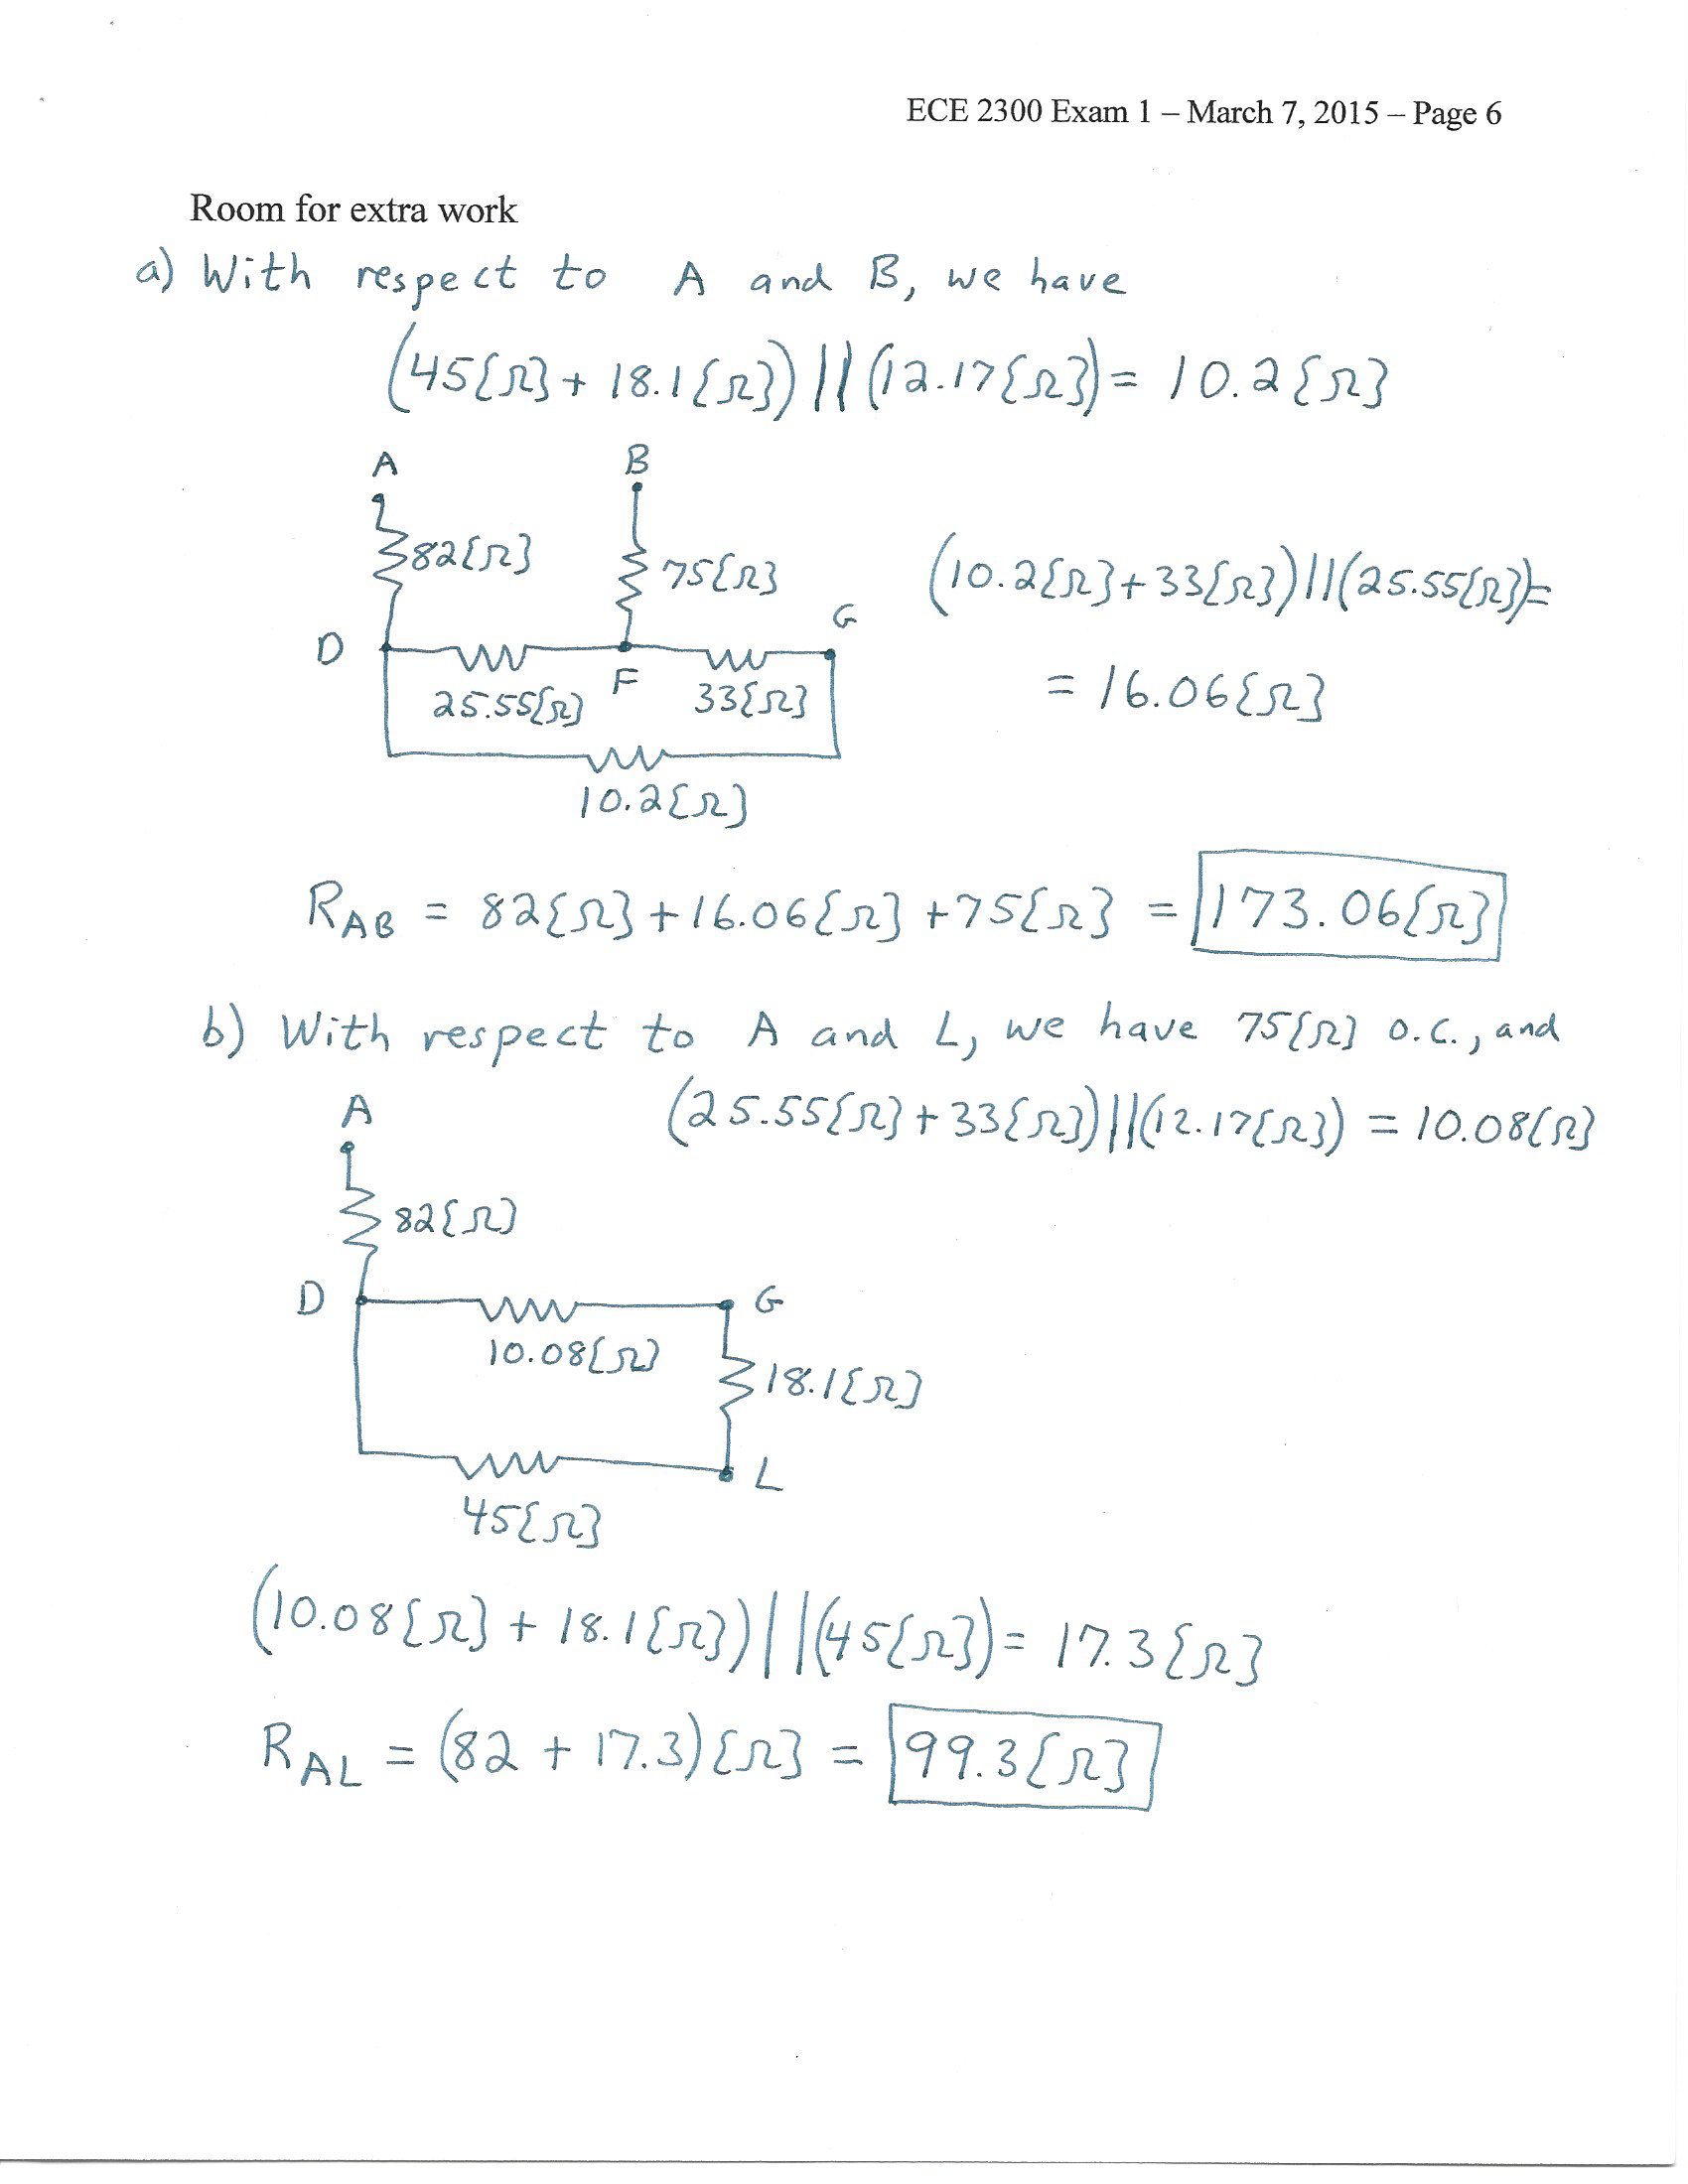 ECE 2300 Exam 1 – March 7, 2015 – Page 6
Room for extra work
a) With respect to A and B, we have
(45{Ω} + 18.1{Ω}) || (12.17{Ω}) = 10.2{Ω}
A B
82{Ω} 75{Ω}
(10.2{Ω} + 33{Ω}) || (25.55{Ω}) =
D F G
25.55{Ω} 33{Ω}
= 16.06{Ω}
10.2{Ω}
R_AB = 82{Ω} + 16.06{Ω} + 75{Ω} = 173.06{Ω}
b) With respect to A and L, we have 75{Ω} o.c., and
(25.55{Ω} + 33{Ω}) || (12.17{Ω}) = 10.08{Ω}
A
82{Ω}
D G
10.08{Ω}
18.1{Ω}
L
45{Ω}
(10.08{Ω} + 18.1{Ω}) || (45{Ω}) = 17.3{Ω}
R_AL = (82 + 17.3){Ω} = 99.3{Ω}